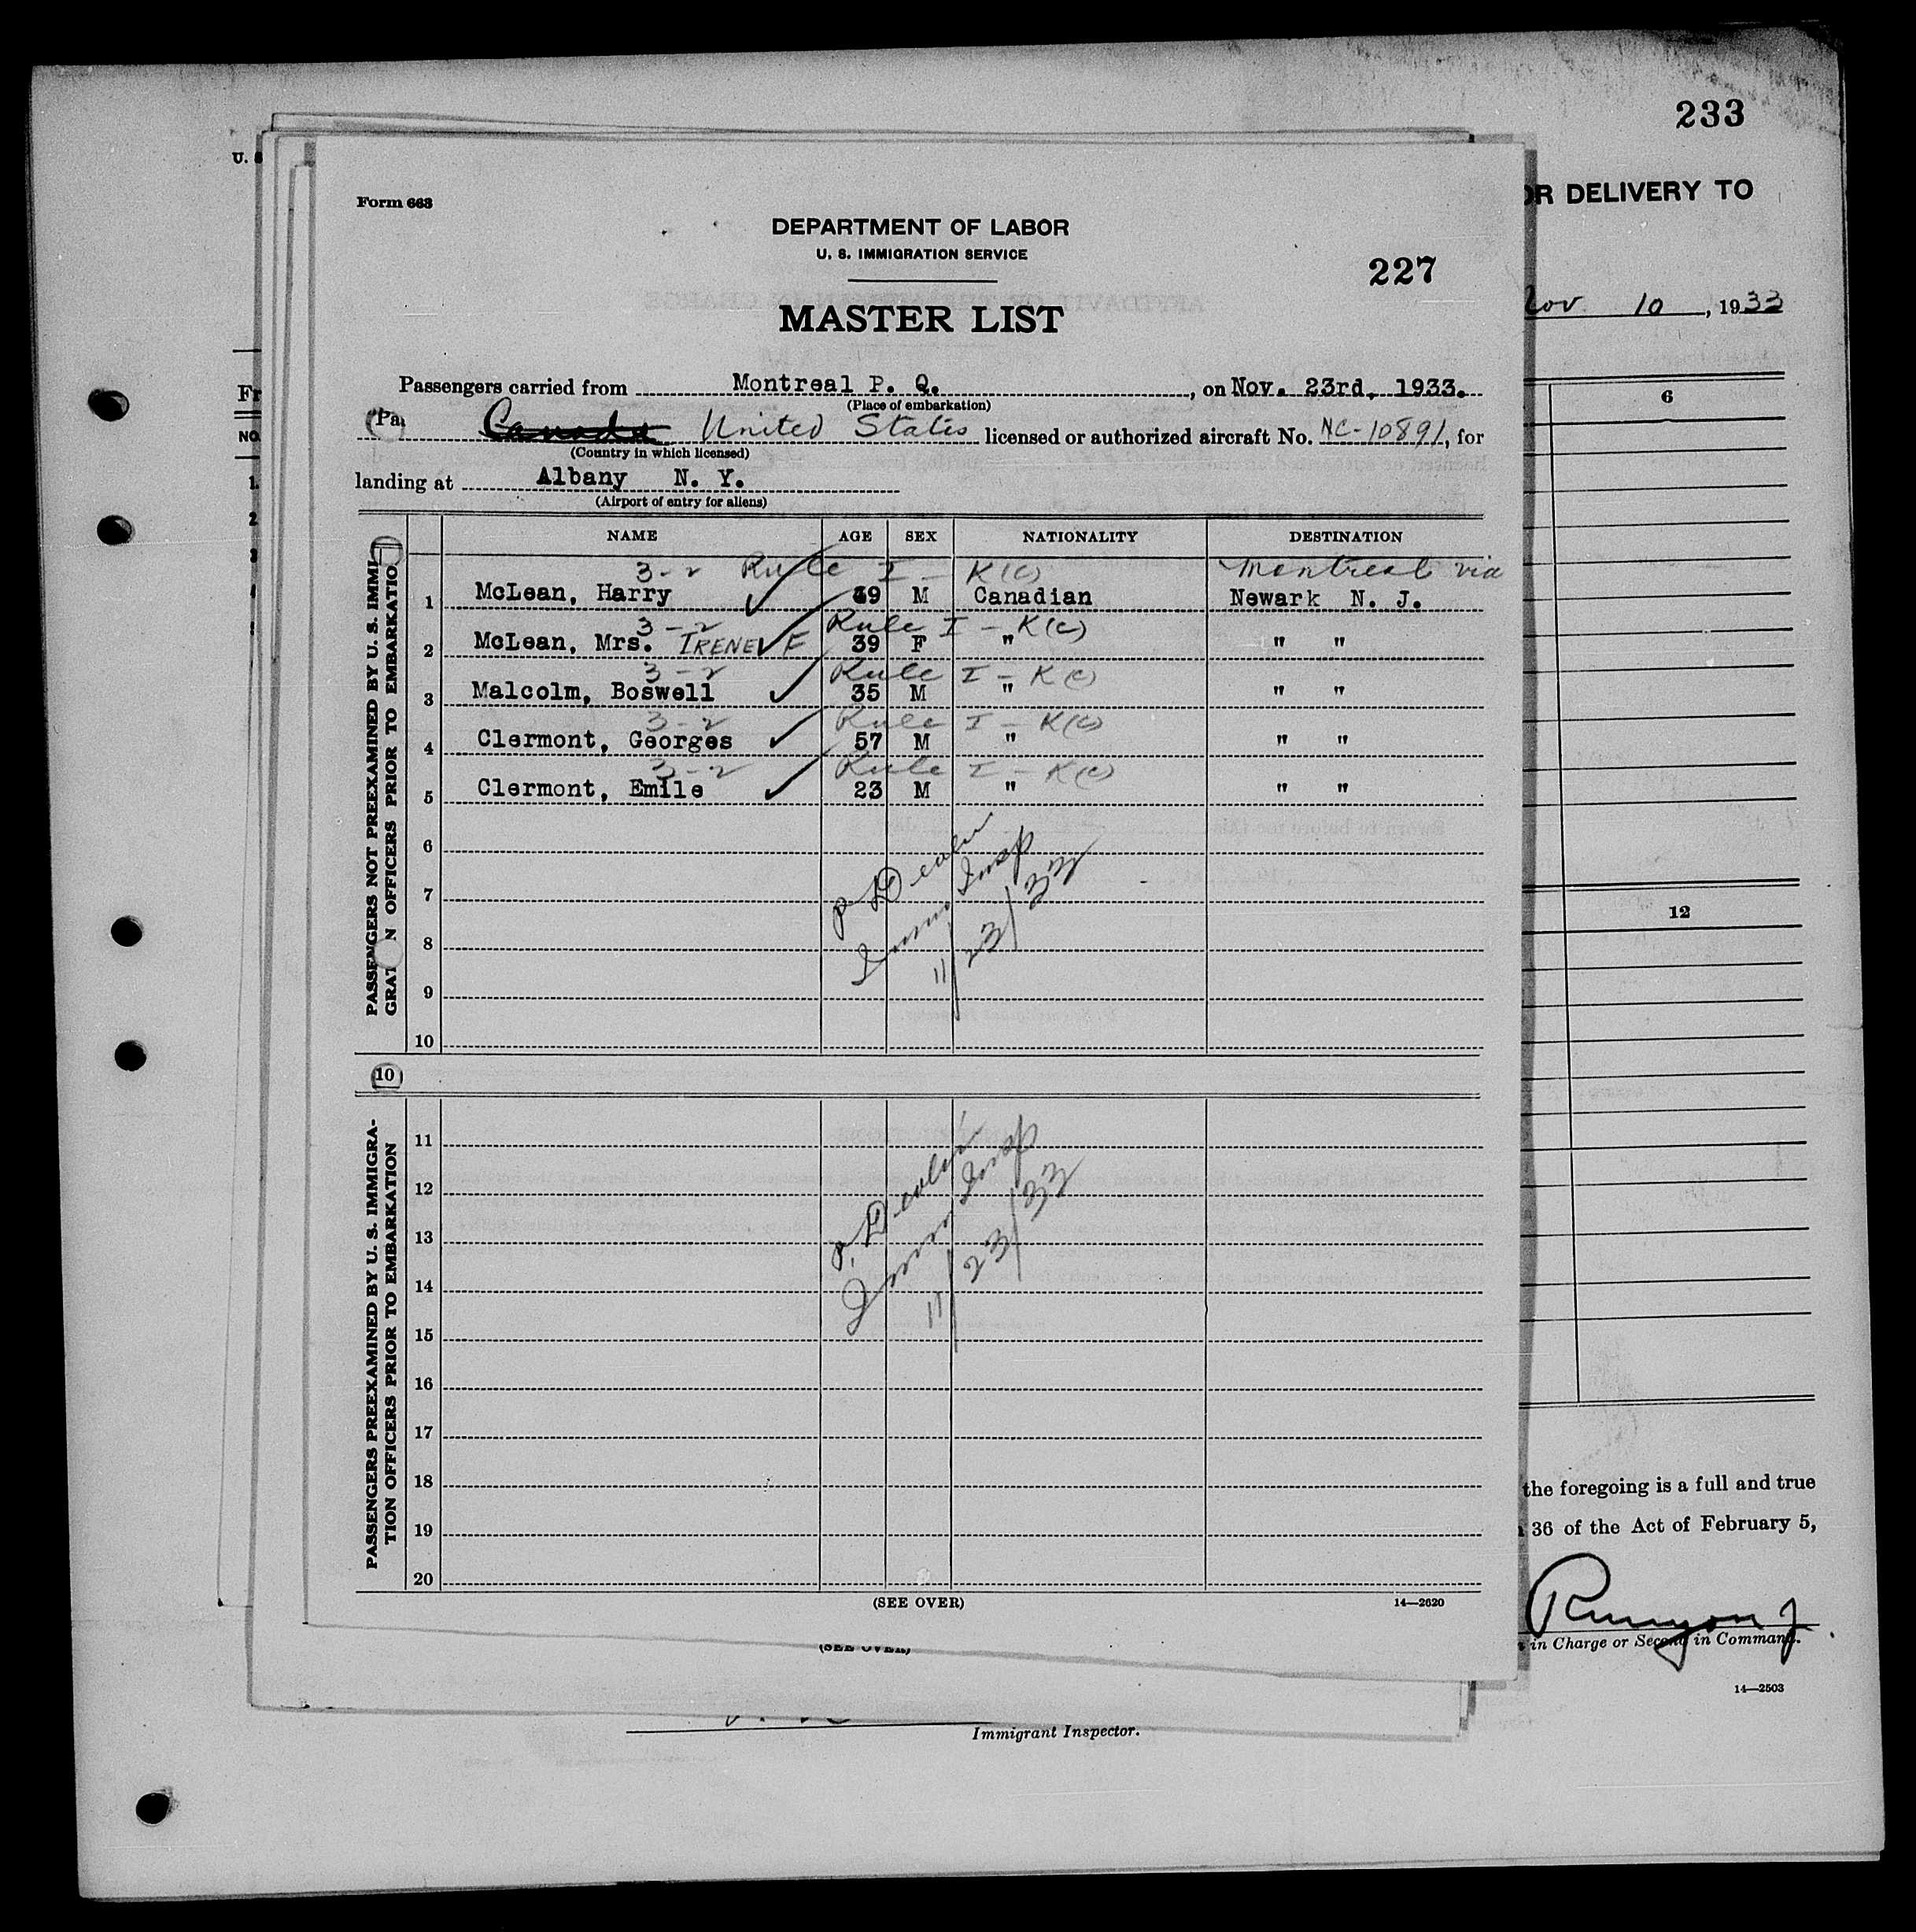 233
U. S
OR DELIVERY TO
Form 663
DEPARTMENT OF LABOR
U. S. IMMIGRATION SERVICE
227
MASTER LIST
Nov. 10, 1933
Passengers carried from Montreal P. Q., on Nov. 23rd, 1933.
(Place of embarkation)
Pa
Canada United States licensed or authorized aircraft No. NC-10891, for
(Country in which licensed)
landing at Albany N. Y.
(Airport of entry for aliens)
Fr
NO.
6
NAME AGE SEX NATIONALITY DESTINATION
3-2 Rule I - K(c) Montreal via
1 McLean, Harry 49 M Canadian Newark N. J.
3-2 Rule I - K(c)
2 McLean, Mrs. IRENE F 39 F " " "
3-2 Rule I - K(c)
3 Malcolm, Boswell 35 M " " "
3-2 Rule I - K(c)
4 Clermont, Georges 57 M " " "
3-2 Rule I - K(c)
5 Clermont, Emile 23 M " " "
6
7
8
9
10
PASSENGERS NOT PREEXAMINED BY U. S. IMMI-
GRATION OFFICERS PRIOR TO EMBARKATION
Immig Insp
11/23/33
12
10
11
12
13
14
15
16
17
18
19
20
PASSENGERS PREEXAMINED BY U. S. IMMIGRA-
TION OFFICERS PRIOR TO EMBARKATION
Immig Insp
11/23/33
(SEE OVER)
14—2620
(SEE OVER)
the foregoing is a full and true
36 of the Act of February 5,
Runyon Jr.
in Charge or Second in Command.
14—2503
Immigrant Inspector.